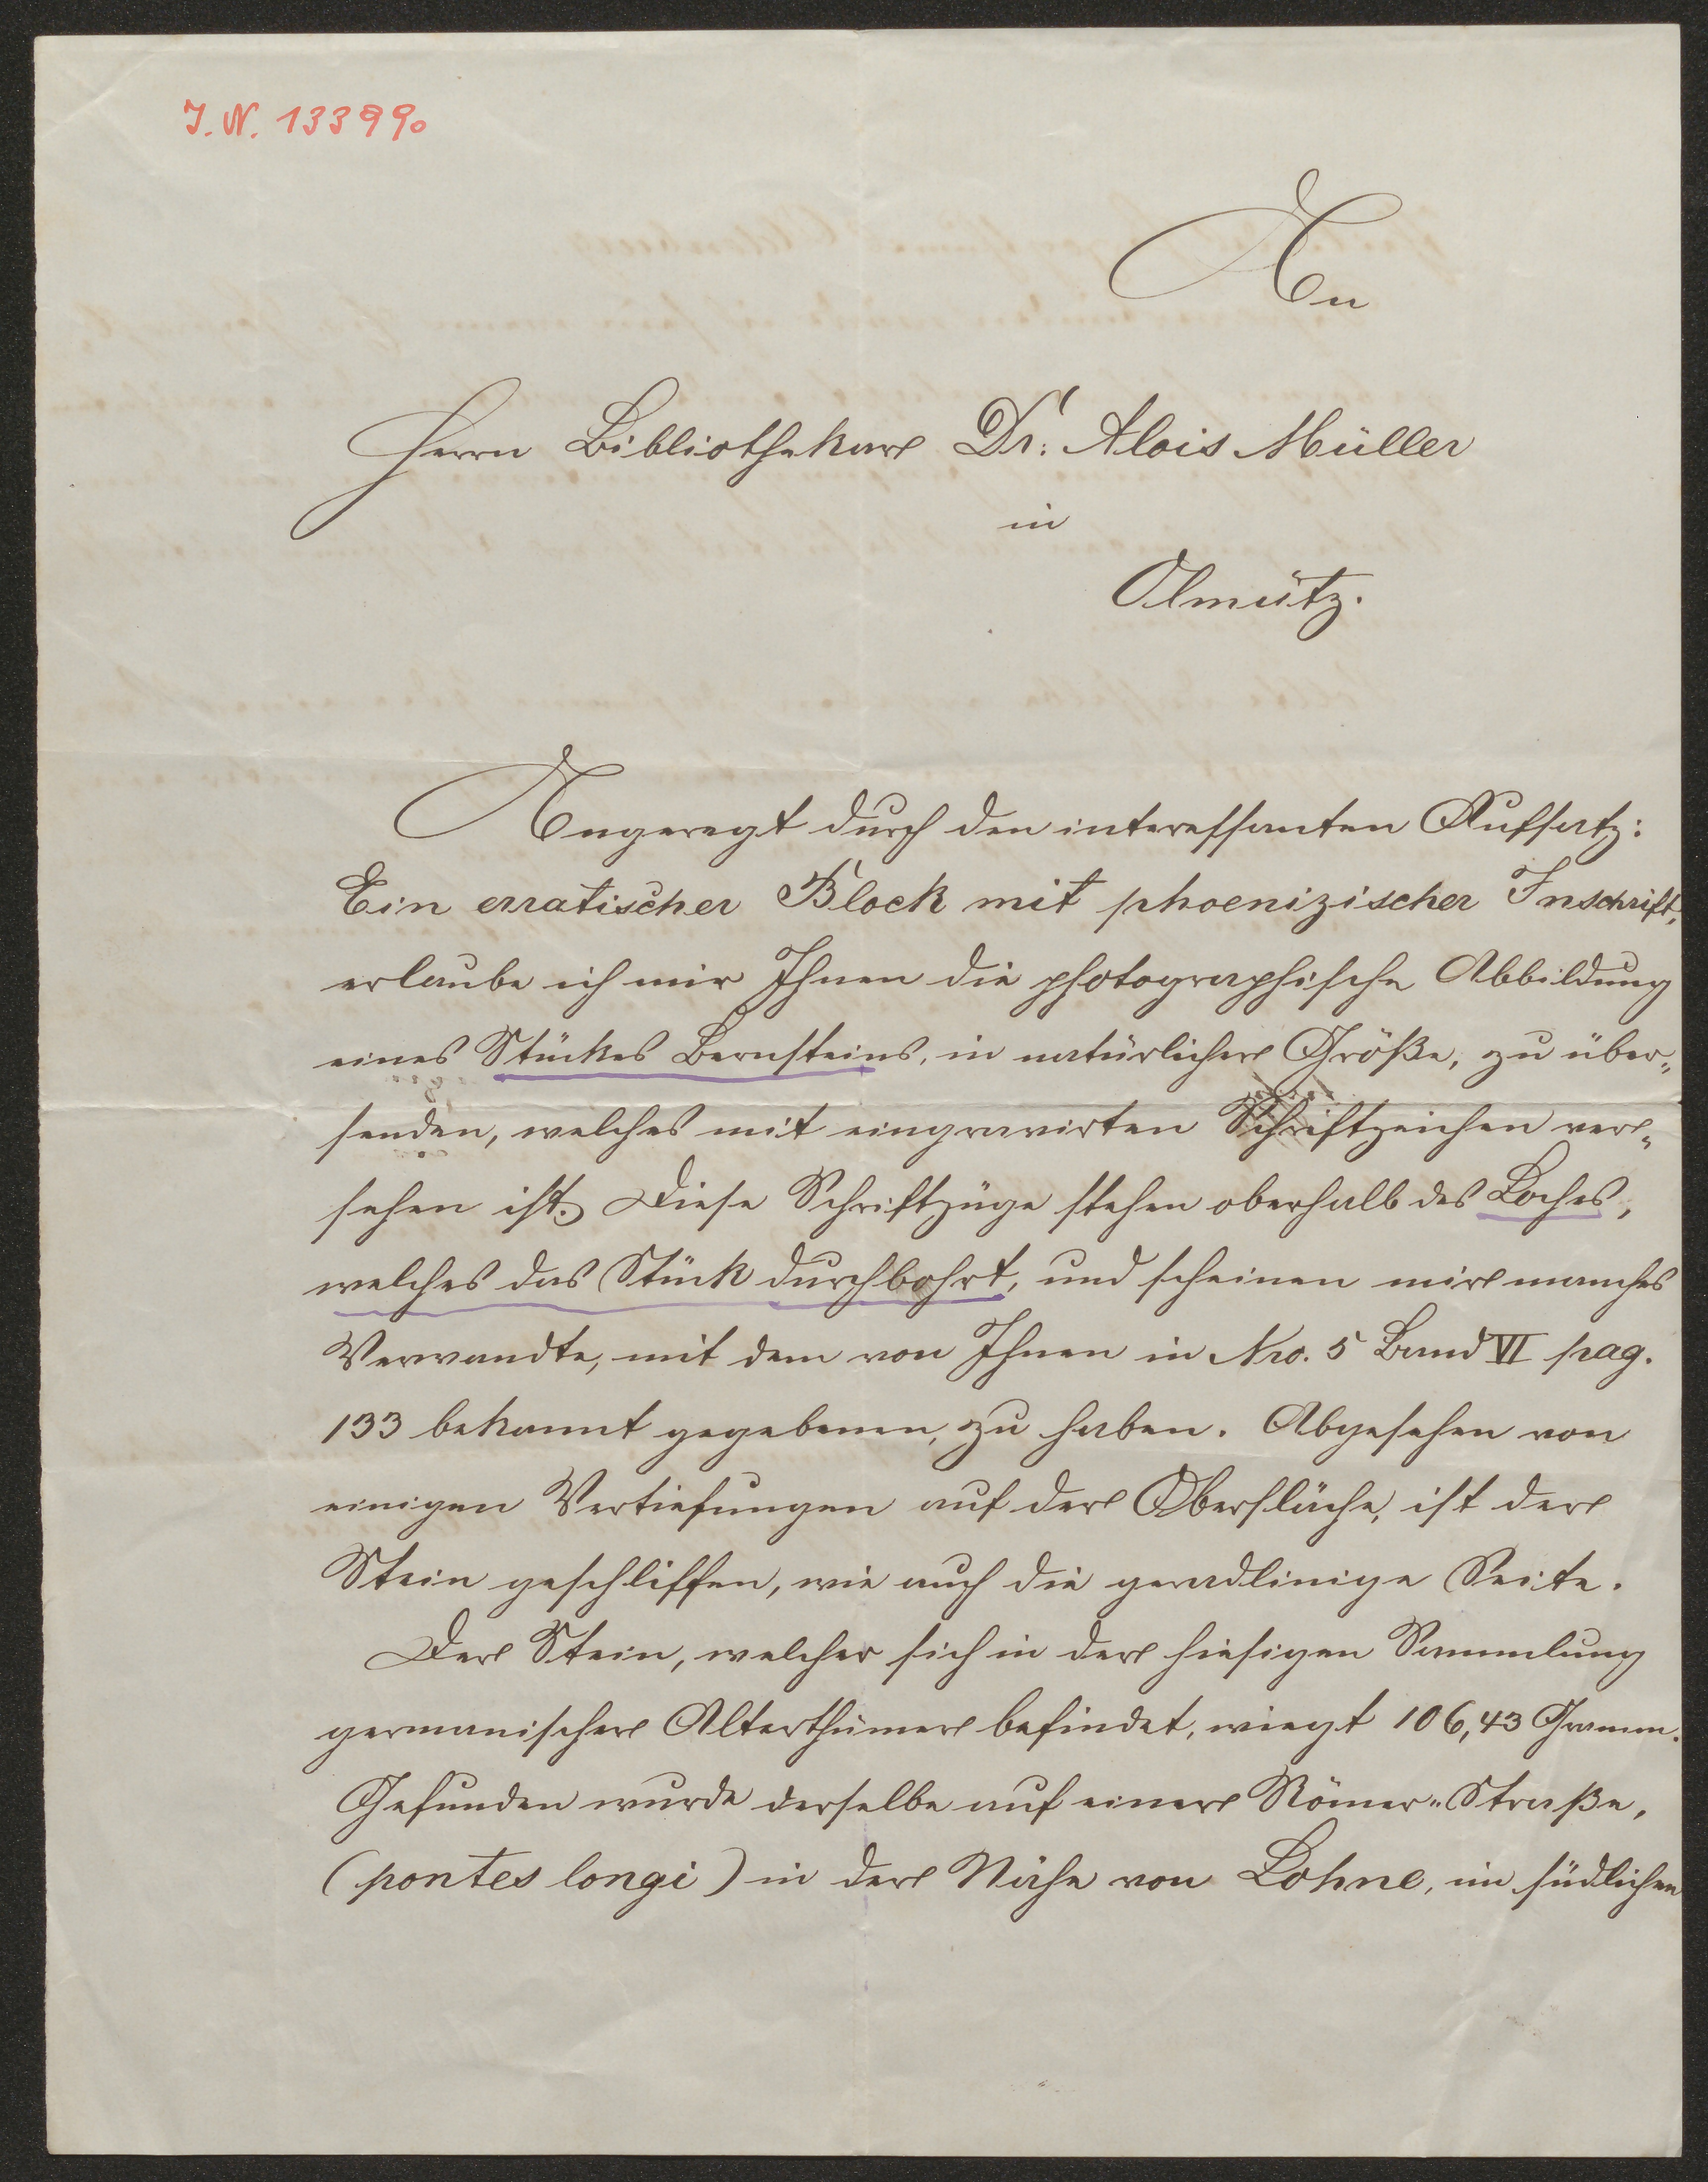 J. N. 133990
An
Herrn Bibliothekar Dr: Alois Müller
in
Olmütz.
Angeregt durch den interessanten Aufsatz:
Ein erratischer Block mit phoenizischer Inschrift,
erlaube ich mir Ihnen die photographische Abbildung
eines Stückes Bernsteins, in natürlicher Größe, zu über„
senden, welches mit eingravirten Schriftzeichen ver„
sehen ist. Diese Schriftzüge stehen oberhalb des Loches,
welches das Stück durchbohrt, und scheinen mir manches
Verwandte, mit dem von Ihnen in Nro. 5 Band VI pag.
133 bekannt gegebenen, zu haben. Abgesehen von
einigen Vertiefungen auf der Oberfläche, ist der
Stein geschliffen, wie auch die geradlinige Seite.
Der Stein, welcher sich in der hiesigen Sammlung
germanischer Alterthümer befindet, wiegt 106,43 Gramm.
Gefunden wurde derselbe auf einer Römer„Straße,
(pontes longi) in der Nähe von Lohne, im südlichen